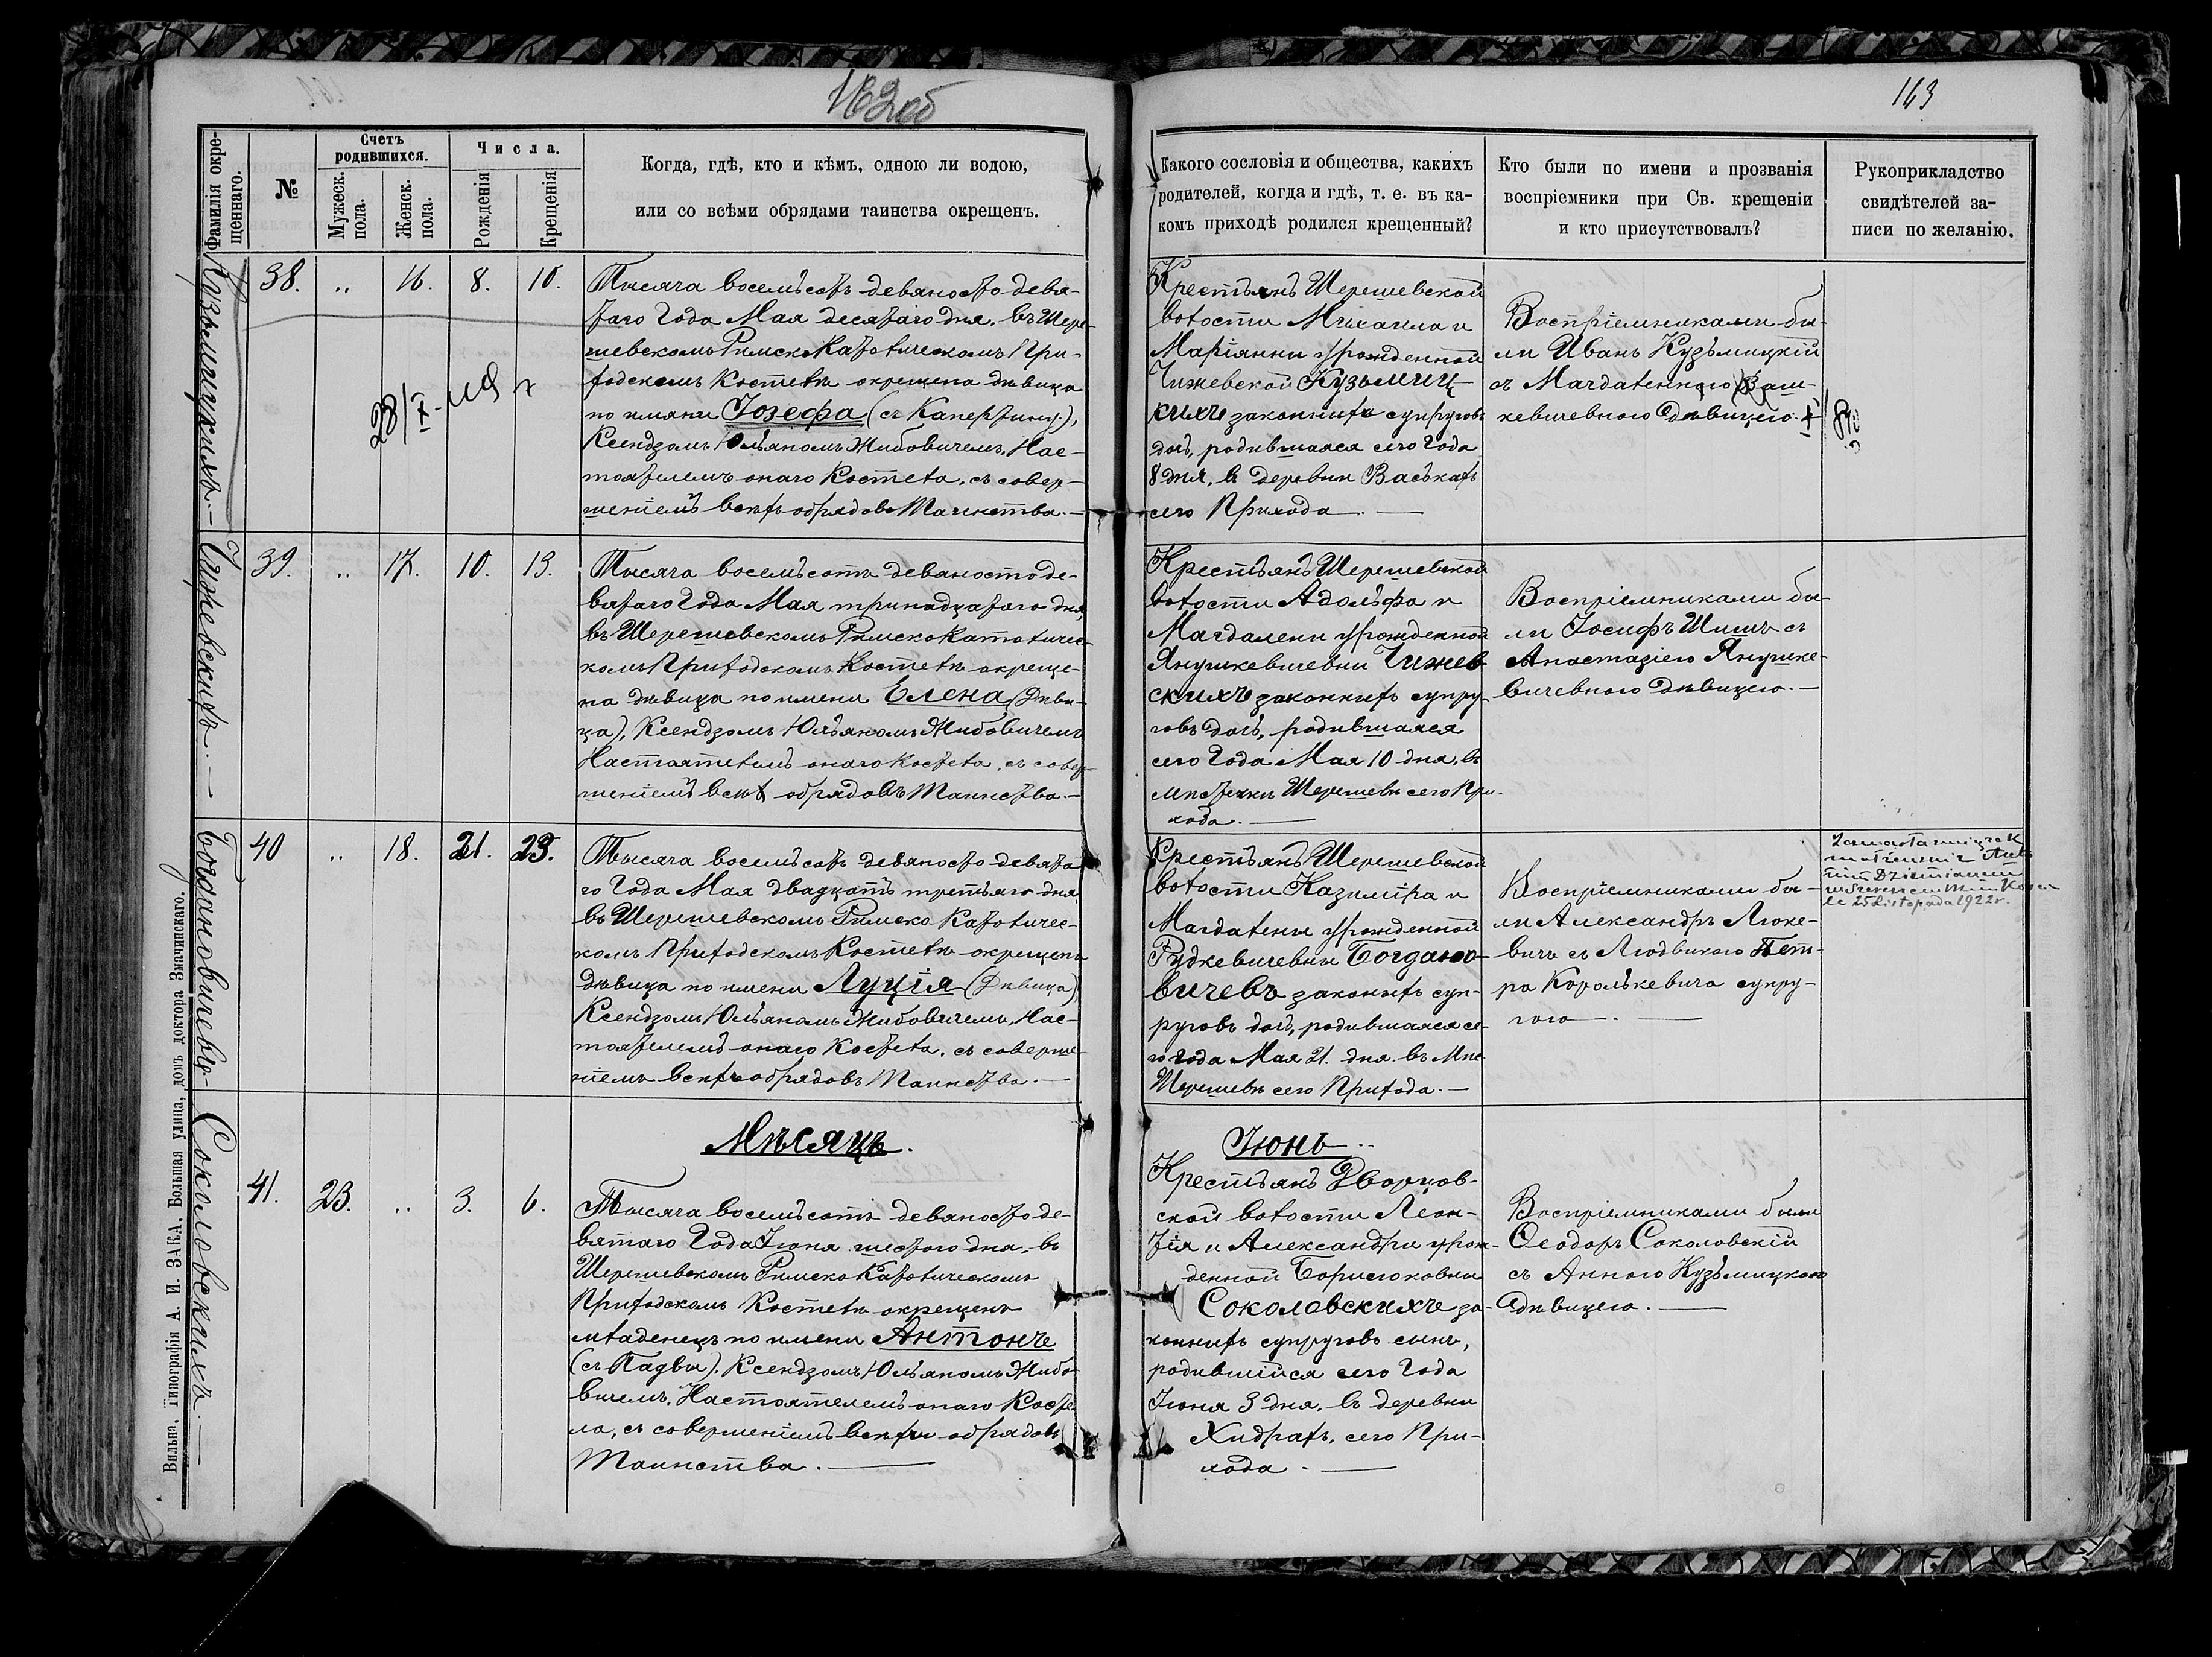 162об
163
Фамилія окре-
щеннаго.
№
Счетъ
родившихся.
Мужеск.
пола.
Женск.
пола.
Числа.
Рожденія
Крещенія
Когда, гдѣ, кто и кѣмъ, одною ли водою,
или со всѣми обрядами таинства окрещенъ.
Какого сословія и общества, какихъ
родителей, когда и гдѣ, т. е. въ ка-
комъ приходѣ родился крещенный?
Кто были по имени и прозванія
воспріемники при Св. крещеніи
и кто присутствовалъ?
Рукоприкладство
свидѣтелей за-
писи по желанію.
Кузьмицкихъ.-
38. „ 16. 8. 10.
Тысяча восемьсотъ девяносто девя-
таго Года Мая десятаго дня, въ Шере-
шевскомъ Римско Католическомъ При-
ходскомъ Костелѣ окрещена дѣвица
по имяни Іозефа (съ Капертину),
Ксендзомъ Юльяномъ Жибовичемъ, Нас-
тоятелемъ онаго Костела, съ совер-
шеніемъ всѣхъ обрядовъ Таинства.-
Крестьянъ Шерешевской
волости Михаила и
Маріянни урожденной
Чижевской Кузьмиц-
кихъ законныхъ супруговъ
дочь, родившаяся сего Года
8 дня, въ деревни Васькахъ
сего Прихода.-
Воспріемниками бы-
ли Иванъ Кузьмицкій
съ Магдаленною
кевичевною Дѣвицею.
Чижевскихъ.-
39. „ 17. 10. 13.
Тысяча восемьсотъ девяносто де-
вятаго Года Мая тринадцатаго дня,
въ Шерешевскомъ Римско Католичес-
комъ Приходскомъ Костелѣ окреще-
на дѣвица по имени Елена (Дѣви-
ца), Ксендзомъ Юльяномъ Жибовичемъ
Настоятелемъ онаго Костела, съ совер-
шеніемъ всѣхъ обрядовъ Таинства.-
Крестьянъ Шерешевской
волости Адольфа и
Магдалени урожденной
Янушкевичевни Чижев-
скихъ законныхъ супру-
говъ дочь, родившаяся
сего Года Мая 10 дня, въ
мѣстечкѣ Шерешевѣ сего При-
хода.-
Воспріемниками бы-
ли Іосифъ Шишъ съ
Анастазіею Янушке-
вичевною Дѣвицею.-
Богдановичевъ-
40 „ 18. 21. 23.
Тысяча восемьсотъ девяносто девята-
го Года Мая двадцать третьяго дня
въ Шерешевскомъ Римско Католичес-
комъ Приходскомъ Костелѣ окрещена
дѣвица по имени Луція (Дѣвица)
Ксендзомъ Юльяномъ Жибовичемъ, Нас-
тоятелемъ онаго Костела, съ соверше-
ніемъ всѣхъ обрядовъ Таинства.-
Крестьянъ Шерешевской
волости Казиміра и
Магдалени урожденной
Рудкевичевни Богдано-
вичевъ законныхъ суп-
руговъ дочь, родившаяся се-
го года Мая 21. дня въ Мѣс.
Шерешевѣ сего Прихода.-
Воспріемниками бы-
ли Александръ Люке-
вичъ съ Людвикою Пет-
ра Королькевича супру-
гою.-
25 listopada 1922 r.
Соколовскихъ.-
Мѣсяцъ.
Іюнь.
41. 23. „ 3. 6.
Тысяча восемьсотъ девяносто де-
вятаго Года Іюня шестого дня, въ
Шерешевскомъ Римско Католическомъ
Приходскомъ Костелѣ окрещенъ
младенецъ по имени Антонъ
(съ Падвы), Ксендзомъ Юльяномъ Жибо-
вичемъ, Настоятелемъ онаго Косте-
ла, съ совершеніемъ всѣхъ обрядовъ
Таинства.-
Крестьянъ Дворцов-
ской волости Леон-
тія и Александри урож-
денной Борисюковни
Соколовскихъ за-
конныхъ супруговъ сынъ,
родившійся сего Года
Іюня 3 дня, въ деревни
Хидрахъ, сего При-
хода.-
Воспріемниками были
Ѳеодоръ Соколовскій
съ Анною Кузьмицкою
Дѣвицею.-
Вильна, Типографія А. И. ЗАКА. Большая улица, домъ доктора Значинскаго.